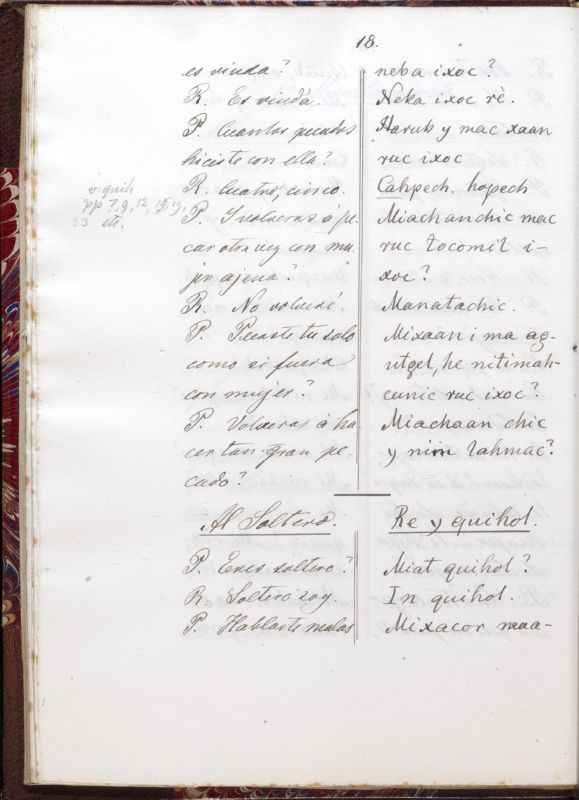 18.
es viuda?
R. Es viuda.
P. Cuantos pecados
hiciste con ella?
R. Cuatro, cinco.
P. I volveras à pe-
car otra vez con mu-
jer ajena?
R. No volveré.
P. Pecaste tu solo
como si fuera
con mujer?
P. Volveras à ha
cer tan gran pe-
cado?
Al Soltero.
P. Eres soltero?
R. Soltero soy.
P. Hablaste malas
neba ixoc?
Neka ixoc rè.
Harub y mac xaan
ruc ixoc
Cahpech. hopech
Miachanchic mac
ruc tocomil i-
xoc?
Manatachic.
Mixaan i ma ag-
utgel, he nitimah-
cunic ruc ixoc?
Miachaan chic
y nim lahmac?
Re y quihol.
Miat quihol?
In quihol.
Mixacor maa-
v. quih
pp 7, 9, 12,
33 etc.